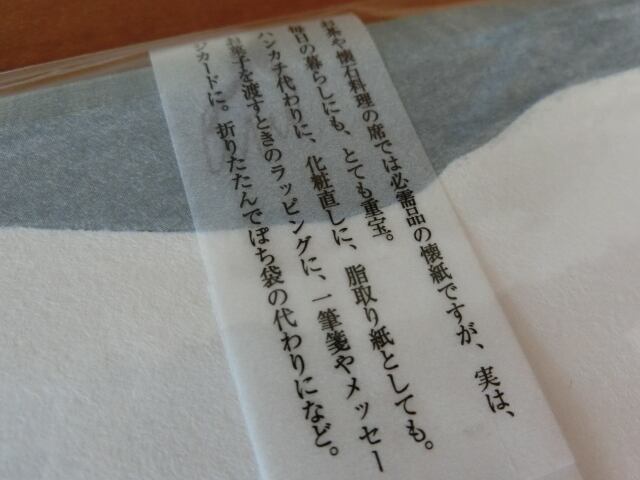 お茶や懐石料理の席では必需品の懐紙ですが、実は、
毎日の暮らしにも、とても重宝。
ハンカチ代わりに、化粧直しに、脂取り紙としても。
お菓子を渡すときのラッピングに、一筆箋やメッセー
ジカードに。折りたたんでぽち袋の代わりになど。